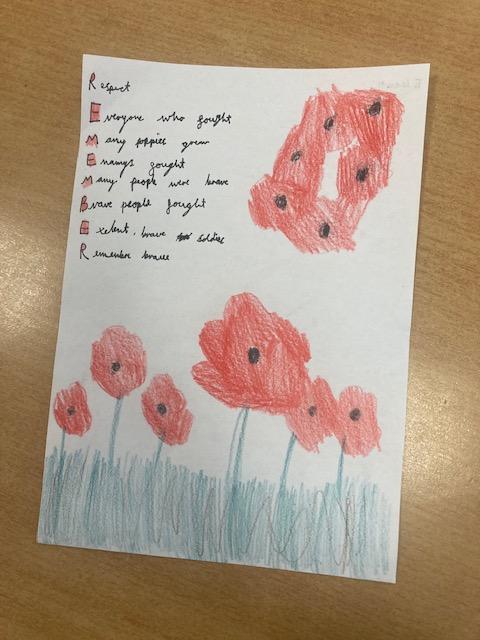 Respect
Everyone who fought
Many poppies grew
Enamys fought
Many people were brave
Brave people fought
Exelent, brave soldies
Remember brave